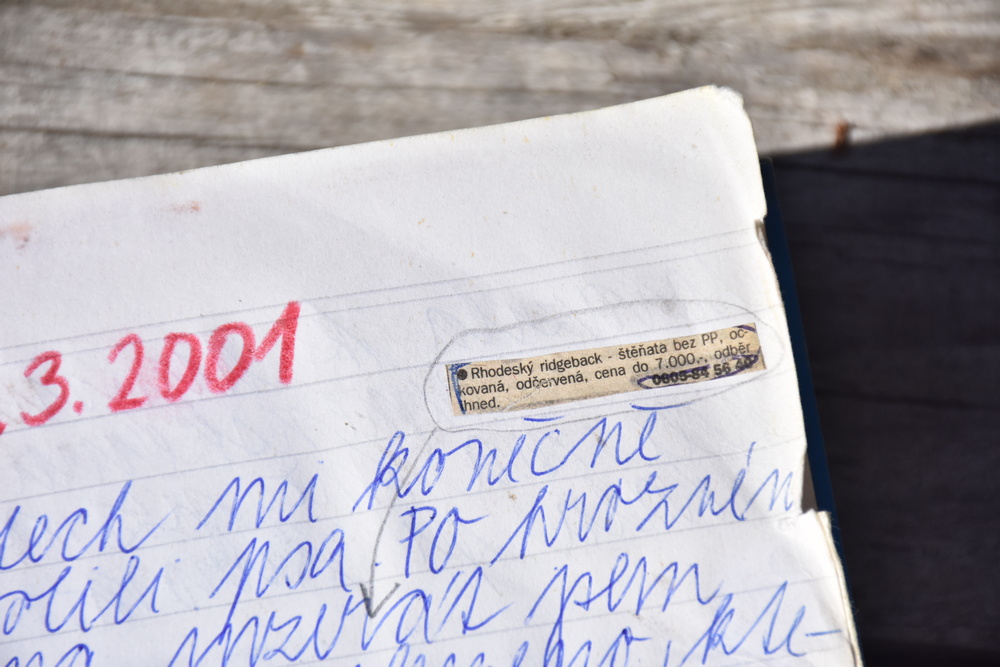 .3.2001
● Rhodeský ridgeback - štěňata bez PP, oč-
kovaná, odčervená, cena do 7.000,-, odběr
ihned.
lech mi konečně
olili psa. Po hrozném
inzerát jsem
kte-